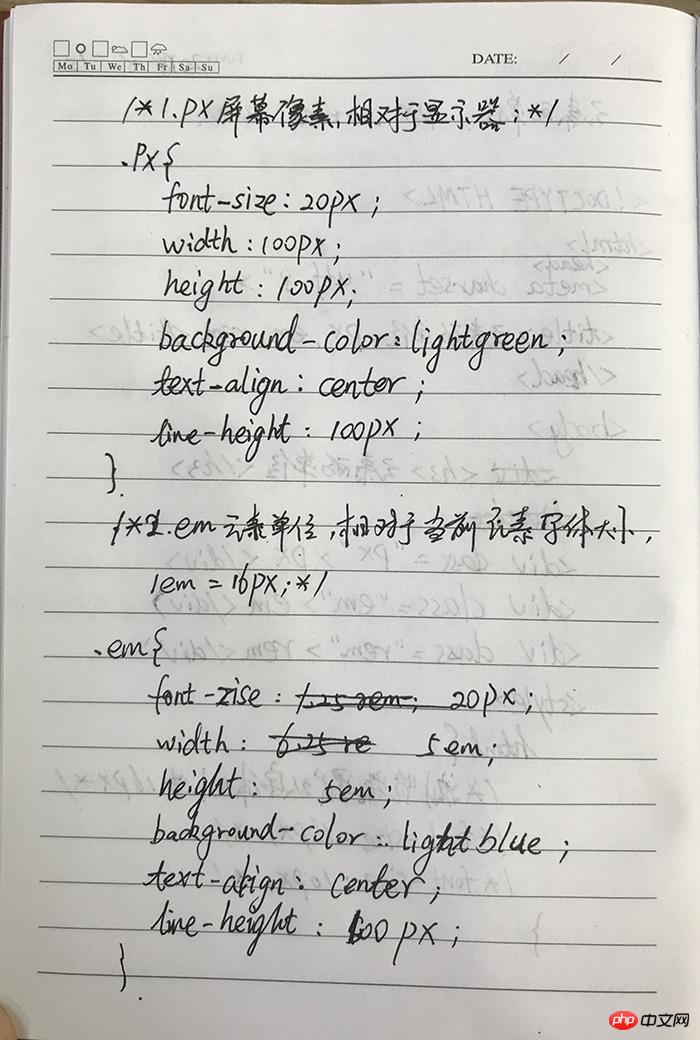 Mo Tu We Th Fr Sa Su
DATE: / /
/*1.px屏幕像素,相对于显示器;*/
.px{
font-size: 20px;
width:100px;
height: 100px;
background-color: lightgreen;
text-align: center;
line-height: 100px;
}
/*2.em元素单位,相对于当前元素字体大小,
1em = 16px;*/
.em{
font-zise: 1.25rem; 20px;
width: 6.25re 5em;
height: 5em;
background-color: lightblue;
text-align: center;
line-height: 100px;
}
php 中文网